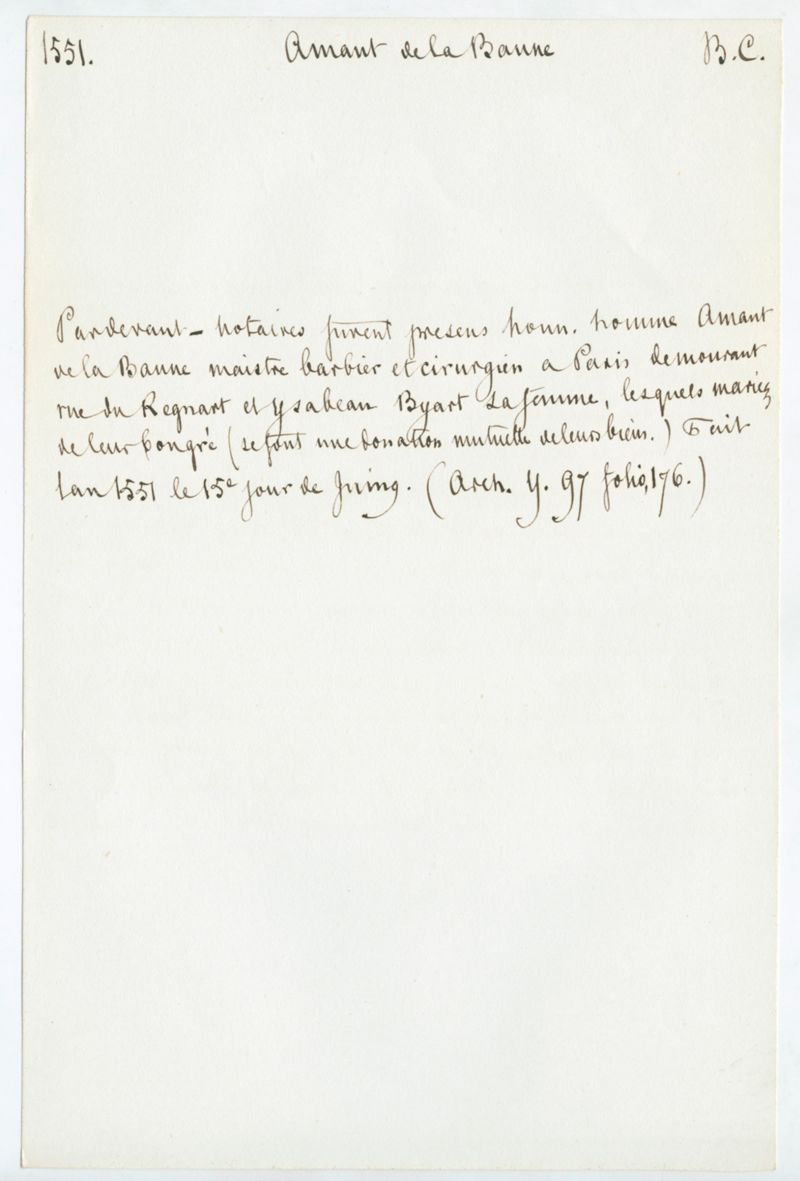 1551. Amant de la Banne B.C.
Pardevant notaires furent presens honn. homme Amant
de la Banne maistre barbier et cirurgien a Paris demourant
rue du Regnart et Ysabeau Byart sa femme, lesquels mariez
de leur bon gré (se font une donation mutuelle de leurs biens.) Fait
lan 1551 le 15e jour de Juing. (Arch. Y. 97 folio, 176.)